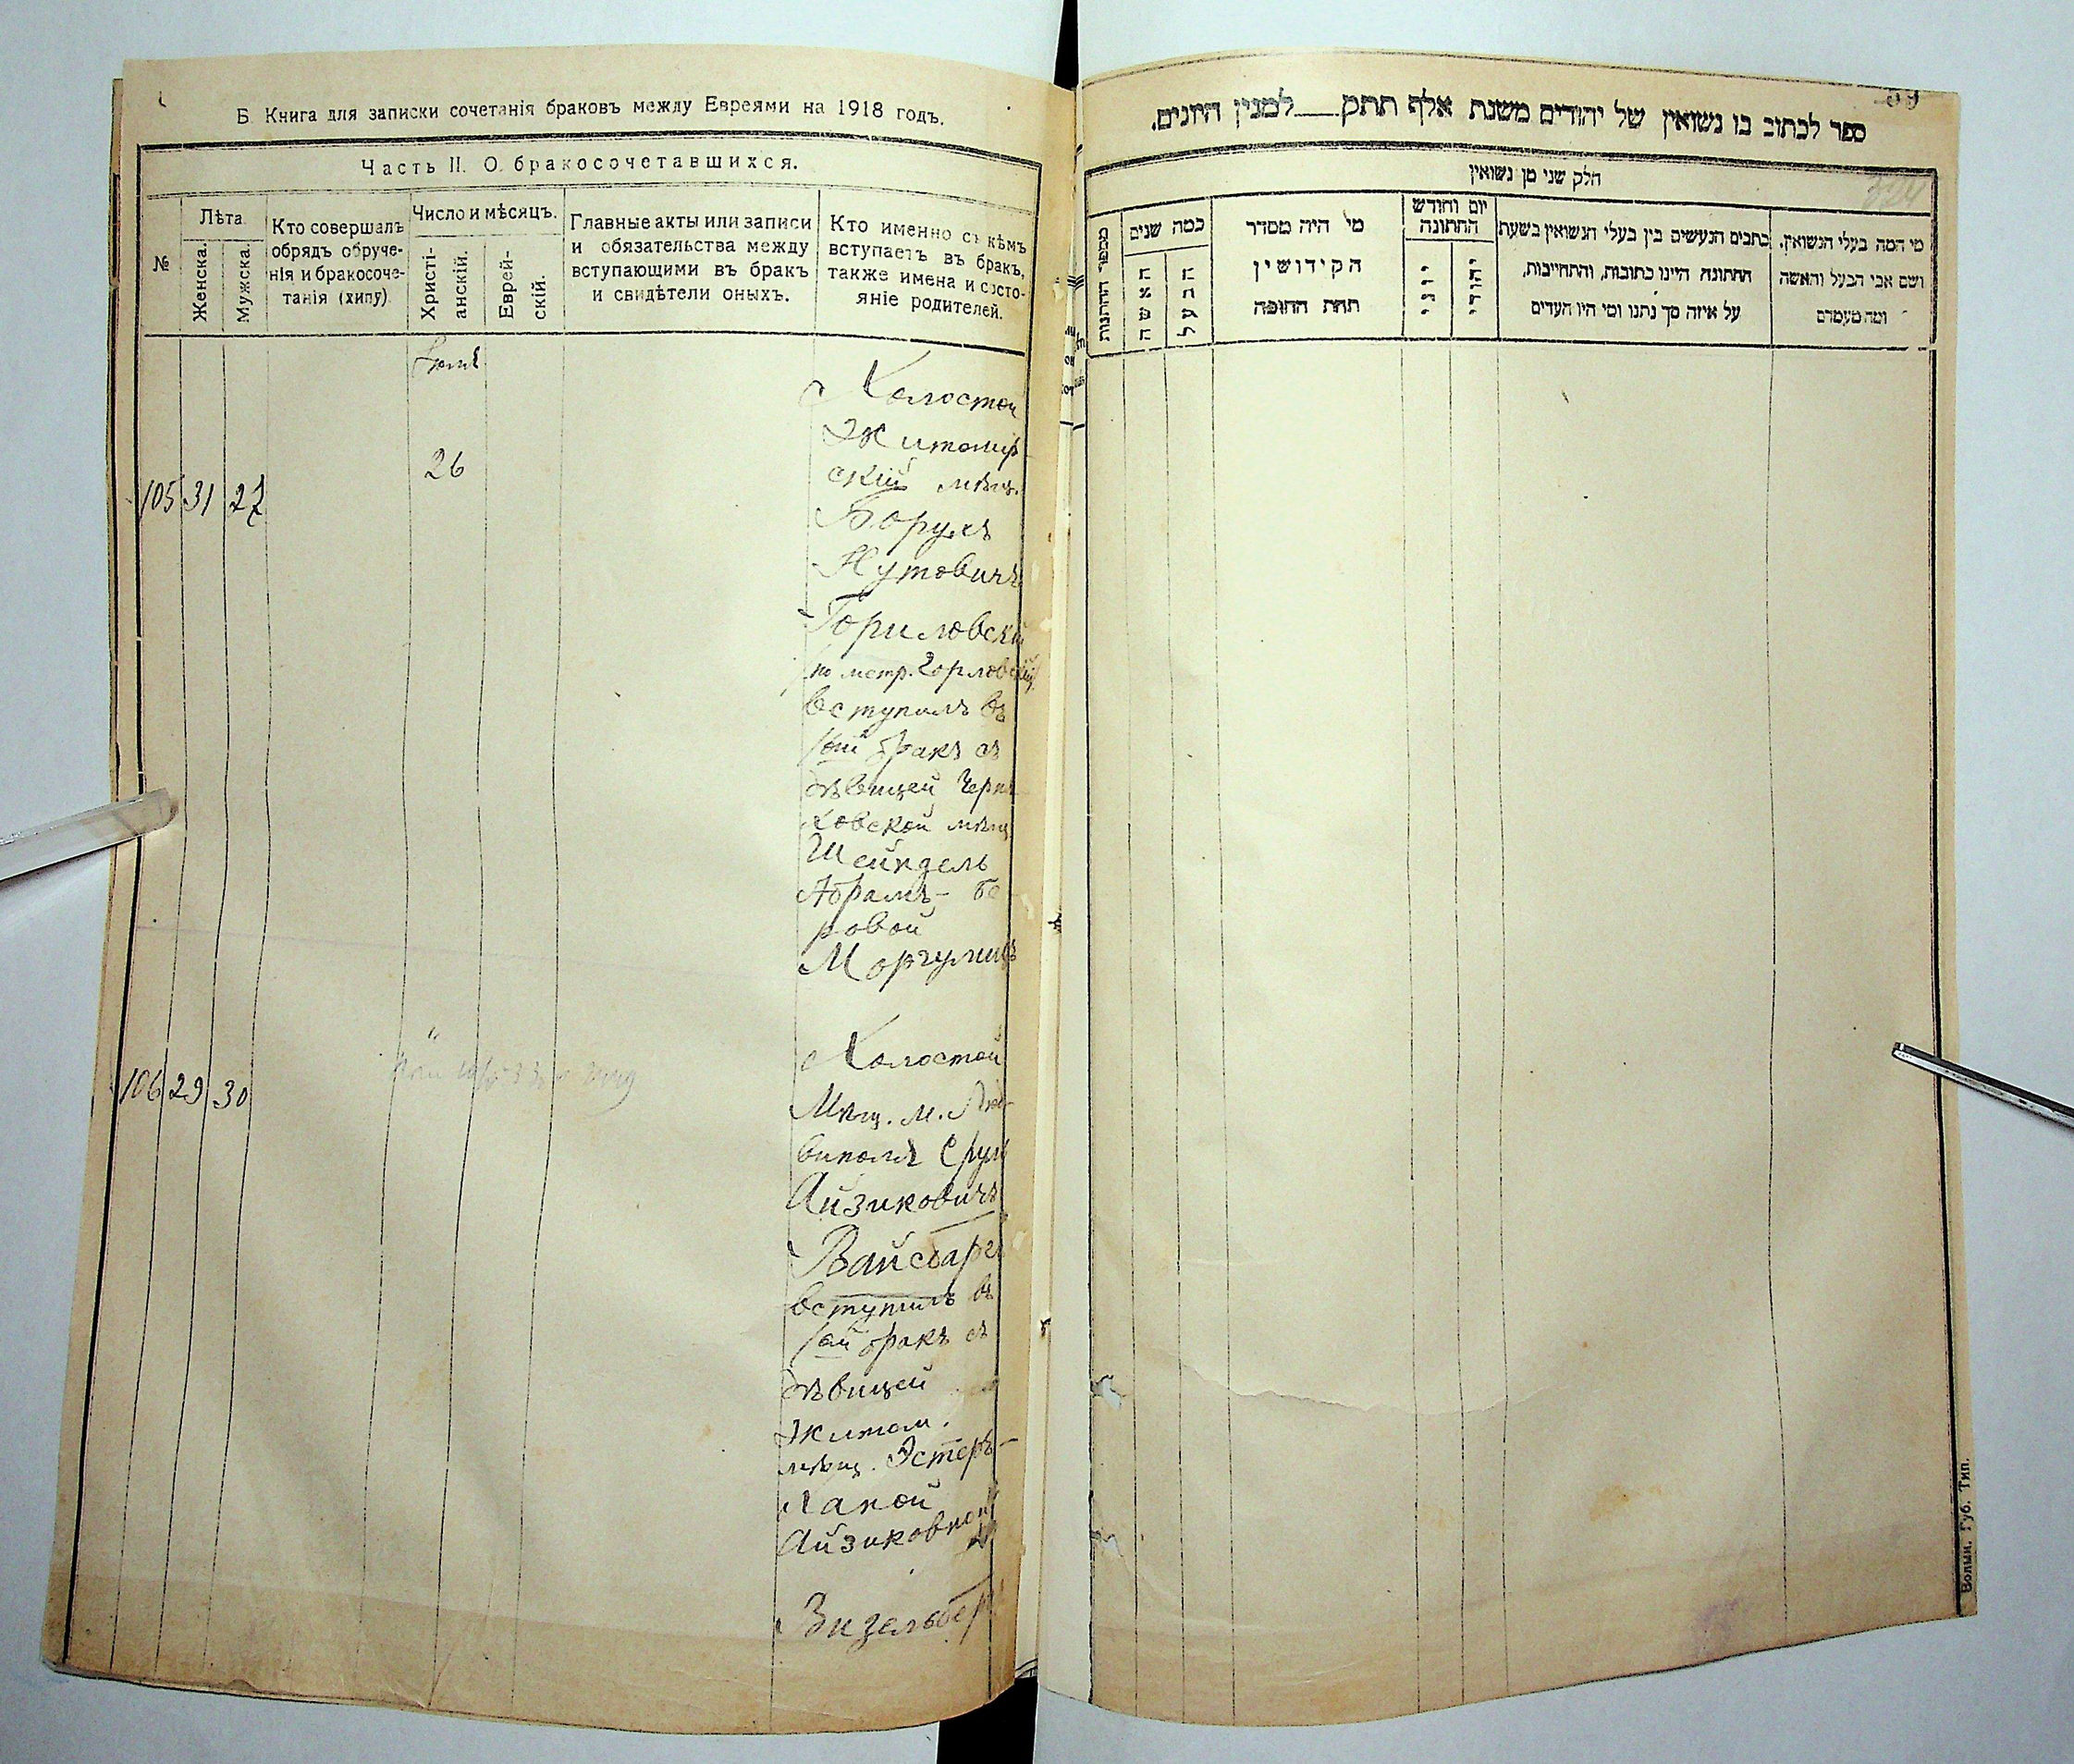 Б. Книга для записки сочетанія браковъ между Евреями на 1918 годъ.
Часть II. О бракосочетавшихся.
№
Лѣта.
Женска.
Мужска.
Кто совершалъ
обрядъ обруче-
нія и бракосоче-
танія (хипу)
Число и мѣсяцъ.
Христі-
анскій.
Еврей-
скій.
Главные акты или записи
и обязательства между
вступающими въ бракъ
и свидѣтели оныхъ.
Кто именно съ кѣмъ
вступаетъ въ бракъ,
также имена и состо-
яніе родителей.
105 31 27
26
Холостой
Житомир
скій мѣщ.
Борухъ
Нутовичъ
Гориловскій
по метр. Горловскій
вступилъ въ
1ый бракъ съ
дѣвицей Черня
ховской мѣщ
Шейндель
Абрамъ- Бе
ровой
Моргулисъ
106 29 30
"
Холостой
Мѣщ. м. Лю-
виполя Сруль
Айзиковичъ
Вайсбаргъ
вступилъ въ
1ый бракъ съ
дѣвицей
Житом.
мѣщ. Эстеръ-
Ханой
Айзиковной
Визельбер
59
ספר לכתוב בו נשואין של יהודים משנת אלף תתק___למנין היונים.
חלק שני מן נשואין
מספר החתונות
כמה שנים
האשה
הבעל
מי היה מסדר
הקידושין
תחת החופה
יום וחודש
החתונה
יוני
יהודי
כתבים הנעשים בין בעלי הנשואין בשעת
החתונה היינו כתובות, והתחייבות,
על איזה סך נתנו ומי היו העדים
מי המה בעלי הנשואין,
ושם אבי הבעל והאשה
ומה מעמדם
Волын. Губ. Тип.